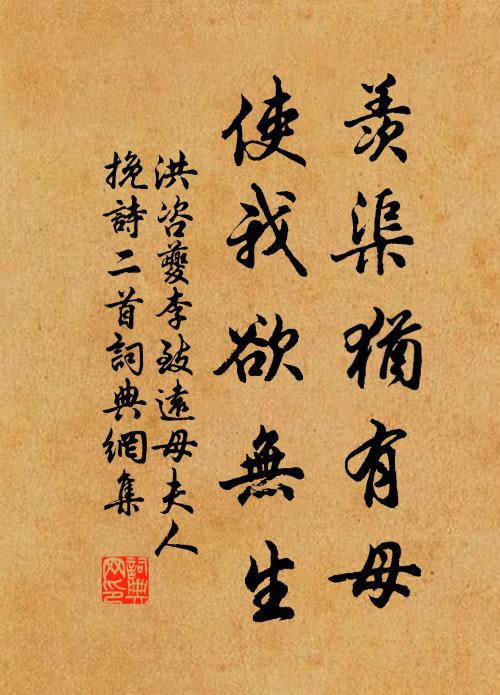 羨渠猶有母
使我欲無生
洪咨夔李致遠母夫人
挽詩二首詞典網集
詞典
网印